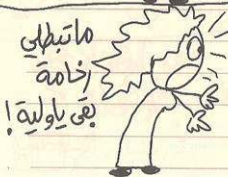 ماتبطلي
رخامة
بقى ياولية!